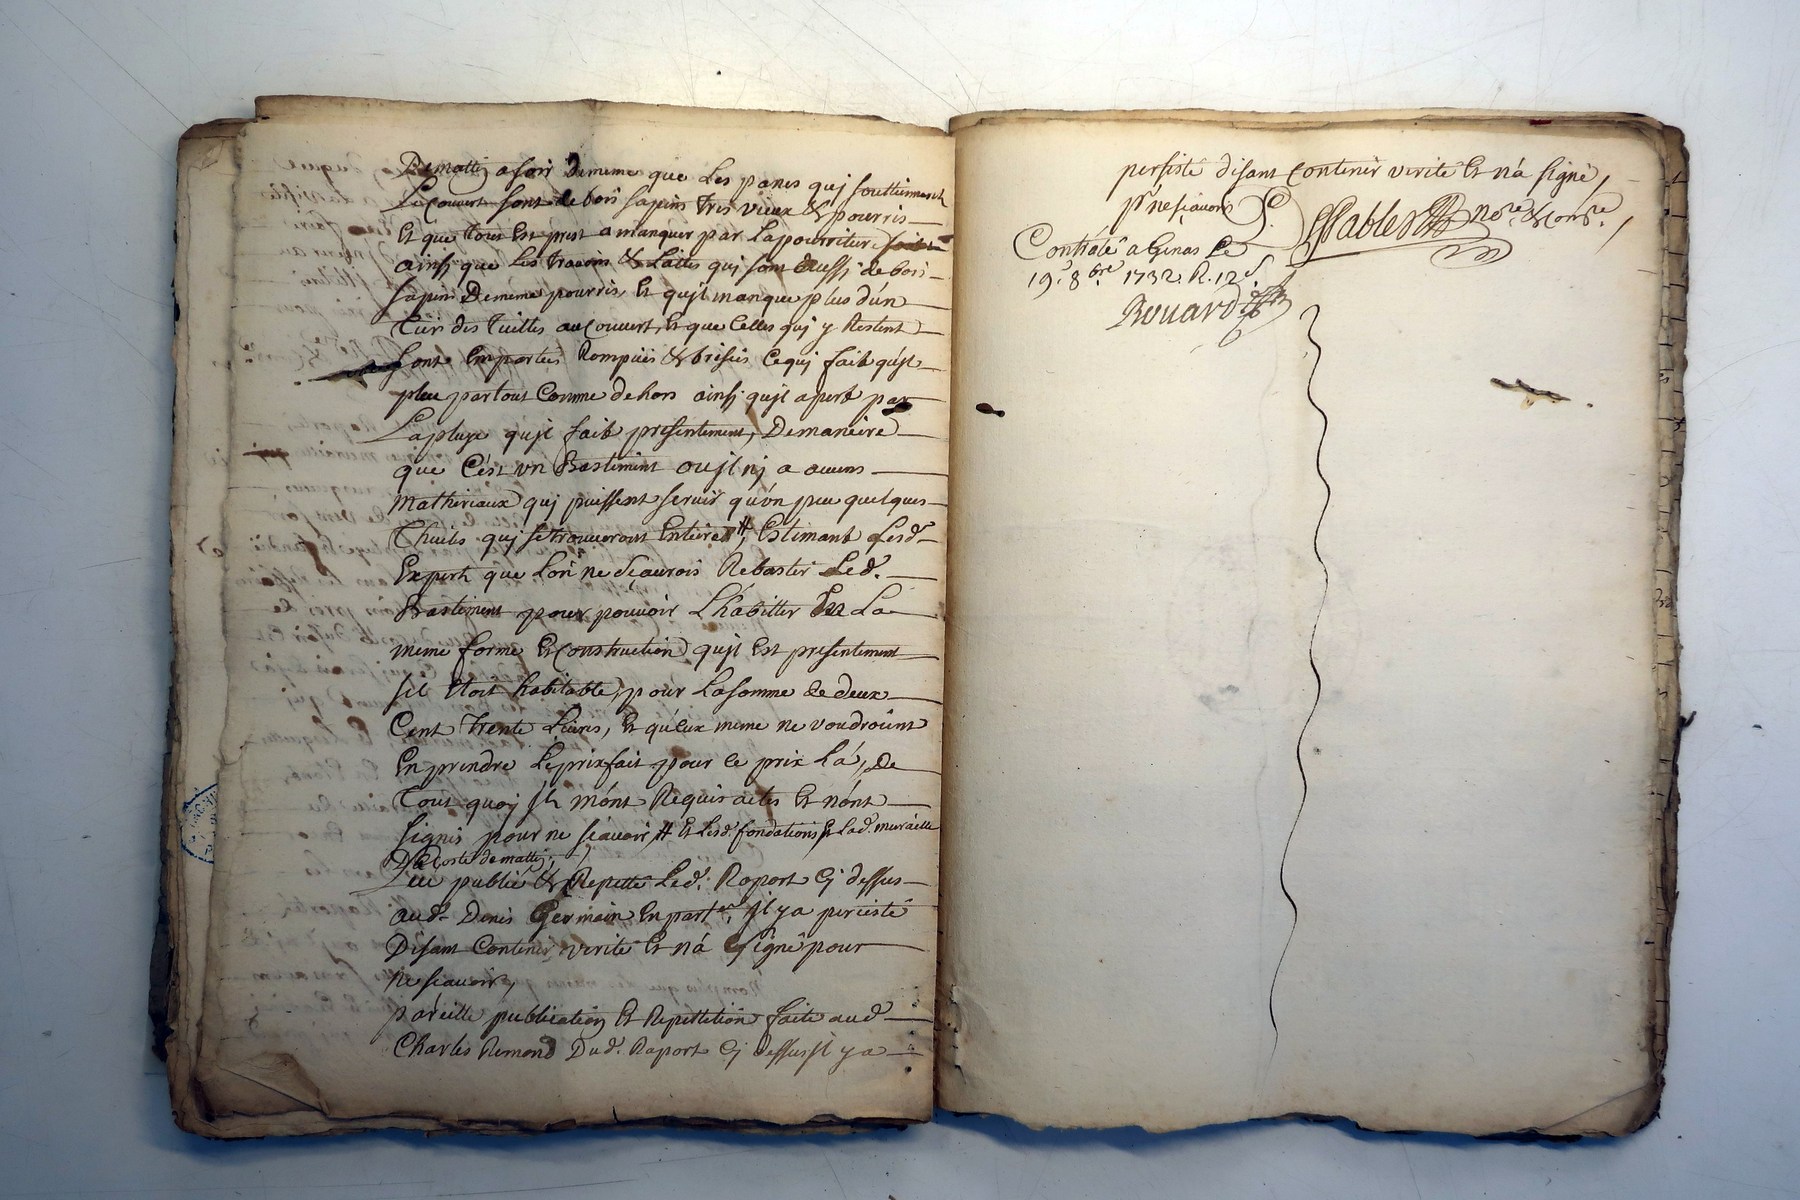 De mattin a soir De meme que Les panes quj souttiennent
Le Couvert sont de bois sapin tres vieux & pourris
Et que tout Est prest a manquer par La pourriture
ainsj que Les travons & Lattes quj sont aussj de bois
sapin De meme pourris, Et qujl manque plus d'ún
tiers des tuilles au Couvert, Et que Celles quj y Restent
sont Emportées Rompuës & brisées Cequj fait qujl
pleu partout Comme dehors ainsj qujl apert par
La pluye qujl fait presentement, De maniere
que C'est un Bastiment oujl nj a aucuns
matheriaux quj puissent servir qu'ún peu quelques
Thuiles quj se trouveront Entieres #, Estimant Lesd.
Experts que L'on ne sçaurois Rebastir Led.
Bastiment pour pouvoir L'habitter En La
meme forme Et Construction qujl Est presentement
sil Etoit habitable, pour La somme de deux
Cent trente Livres, Et qu'Eux meme ne voudroint
En prendre Le prixfait pour ce prix Lá, De
tout quoj jls m'ónt Requis actes Et n'ónt
signés pour ne sçavoir # Et Lesd. fondations Et Lad. muraille
Du Costé de mattin,
Leu publié & Repetté Led. Raport Cj dessus
aud. Denis Germain En part.er, jl y a percisté
Disant Contenir verité Et n'á signé pour
ne sçavoir,
páreille publication Et Repettition faite aud.
Charles Remond Dud. Raport Cj dessus jl y a
persisté disant Contenir verité Et n'á signé,
p.r ne sçavoir
Sables no.re & Com.re,
Contrôlé a Genas Le
19.e 8.bre 1732. R. 12 s.
Rouard